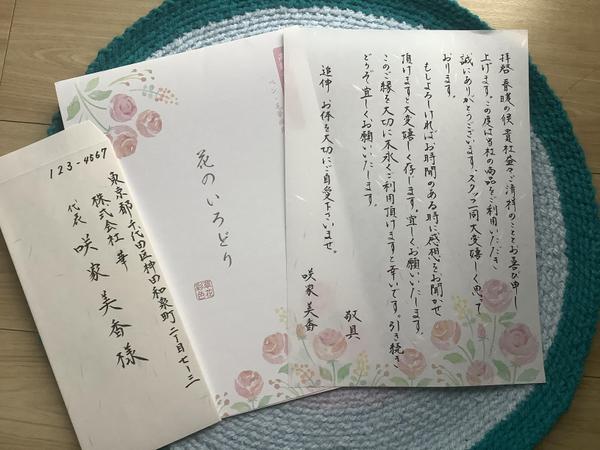 拝啓 春暖の候 貴社益々ご清祥のこととお喜び申し
上げます。この度は当社の商品をご利用いただき
誠にありがとうございます。スタッフ同大変嬉しく思って
おります。
もしよろしければお時間のある時に感想をお聞かせ
頂けますと大変嬉しく存じます。宜しくお願いいたします。
このご縁を大切に末永くご利用頂けますと幸いです。引き続き
どうぞ宜しくお願いいたします。
敬具
追伸 お体を大切にご自愛下さいませ。
咲家美香
花のいろどり
草花
彩色
ペン
123-4567
東京都千代田区神田和泉町二丁目七-三
株式会社 華
代表 咲家美香様